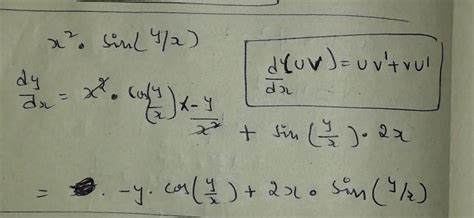 x². sin(y/x)
d/dx (UV) = UV' + VU'
dy/dx = x². cos(y/x) × -y/x² + sin(y/x). 2x
= . -y. cos(y/x) + 2x. sin(y/x)